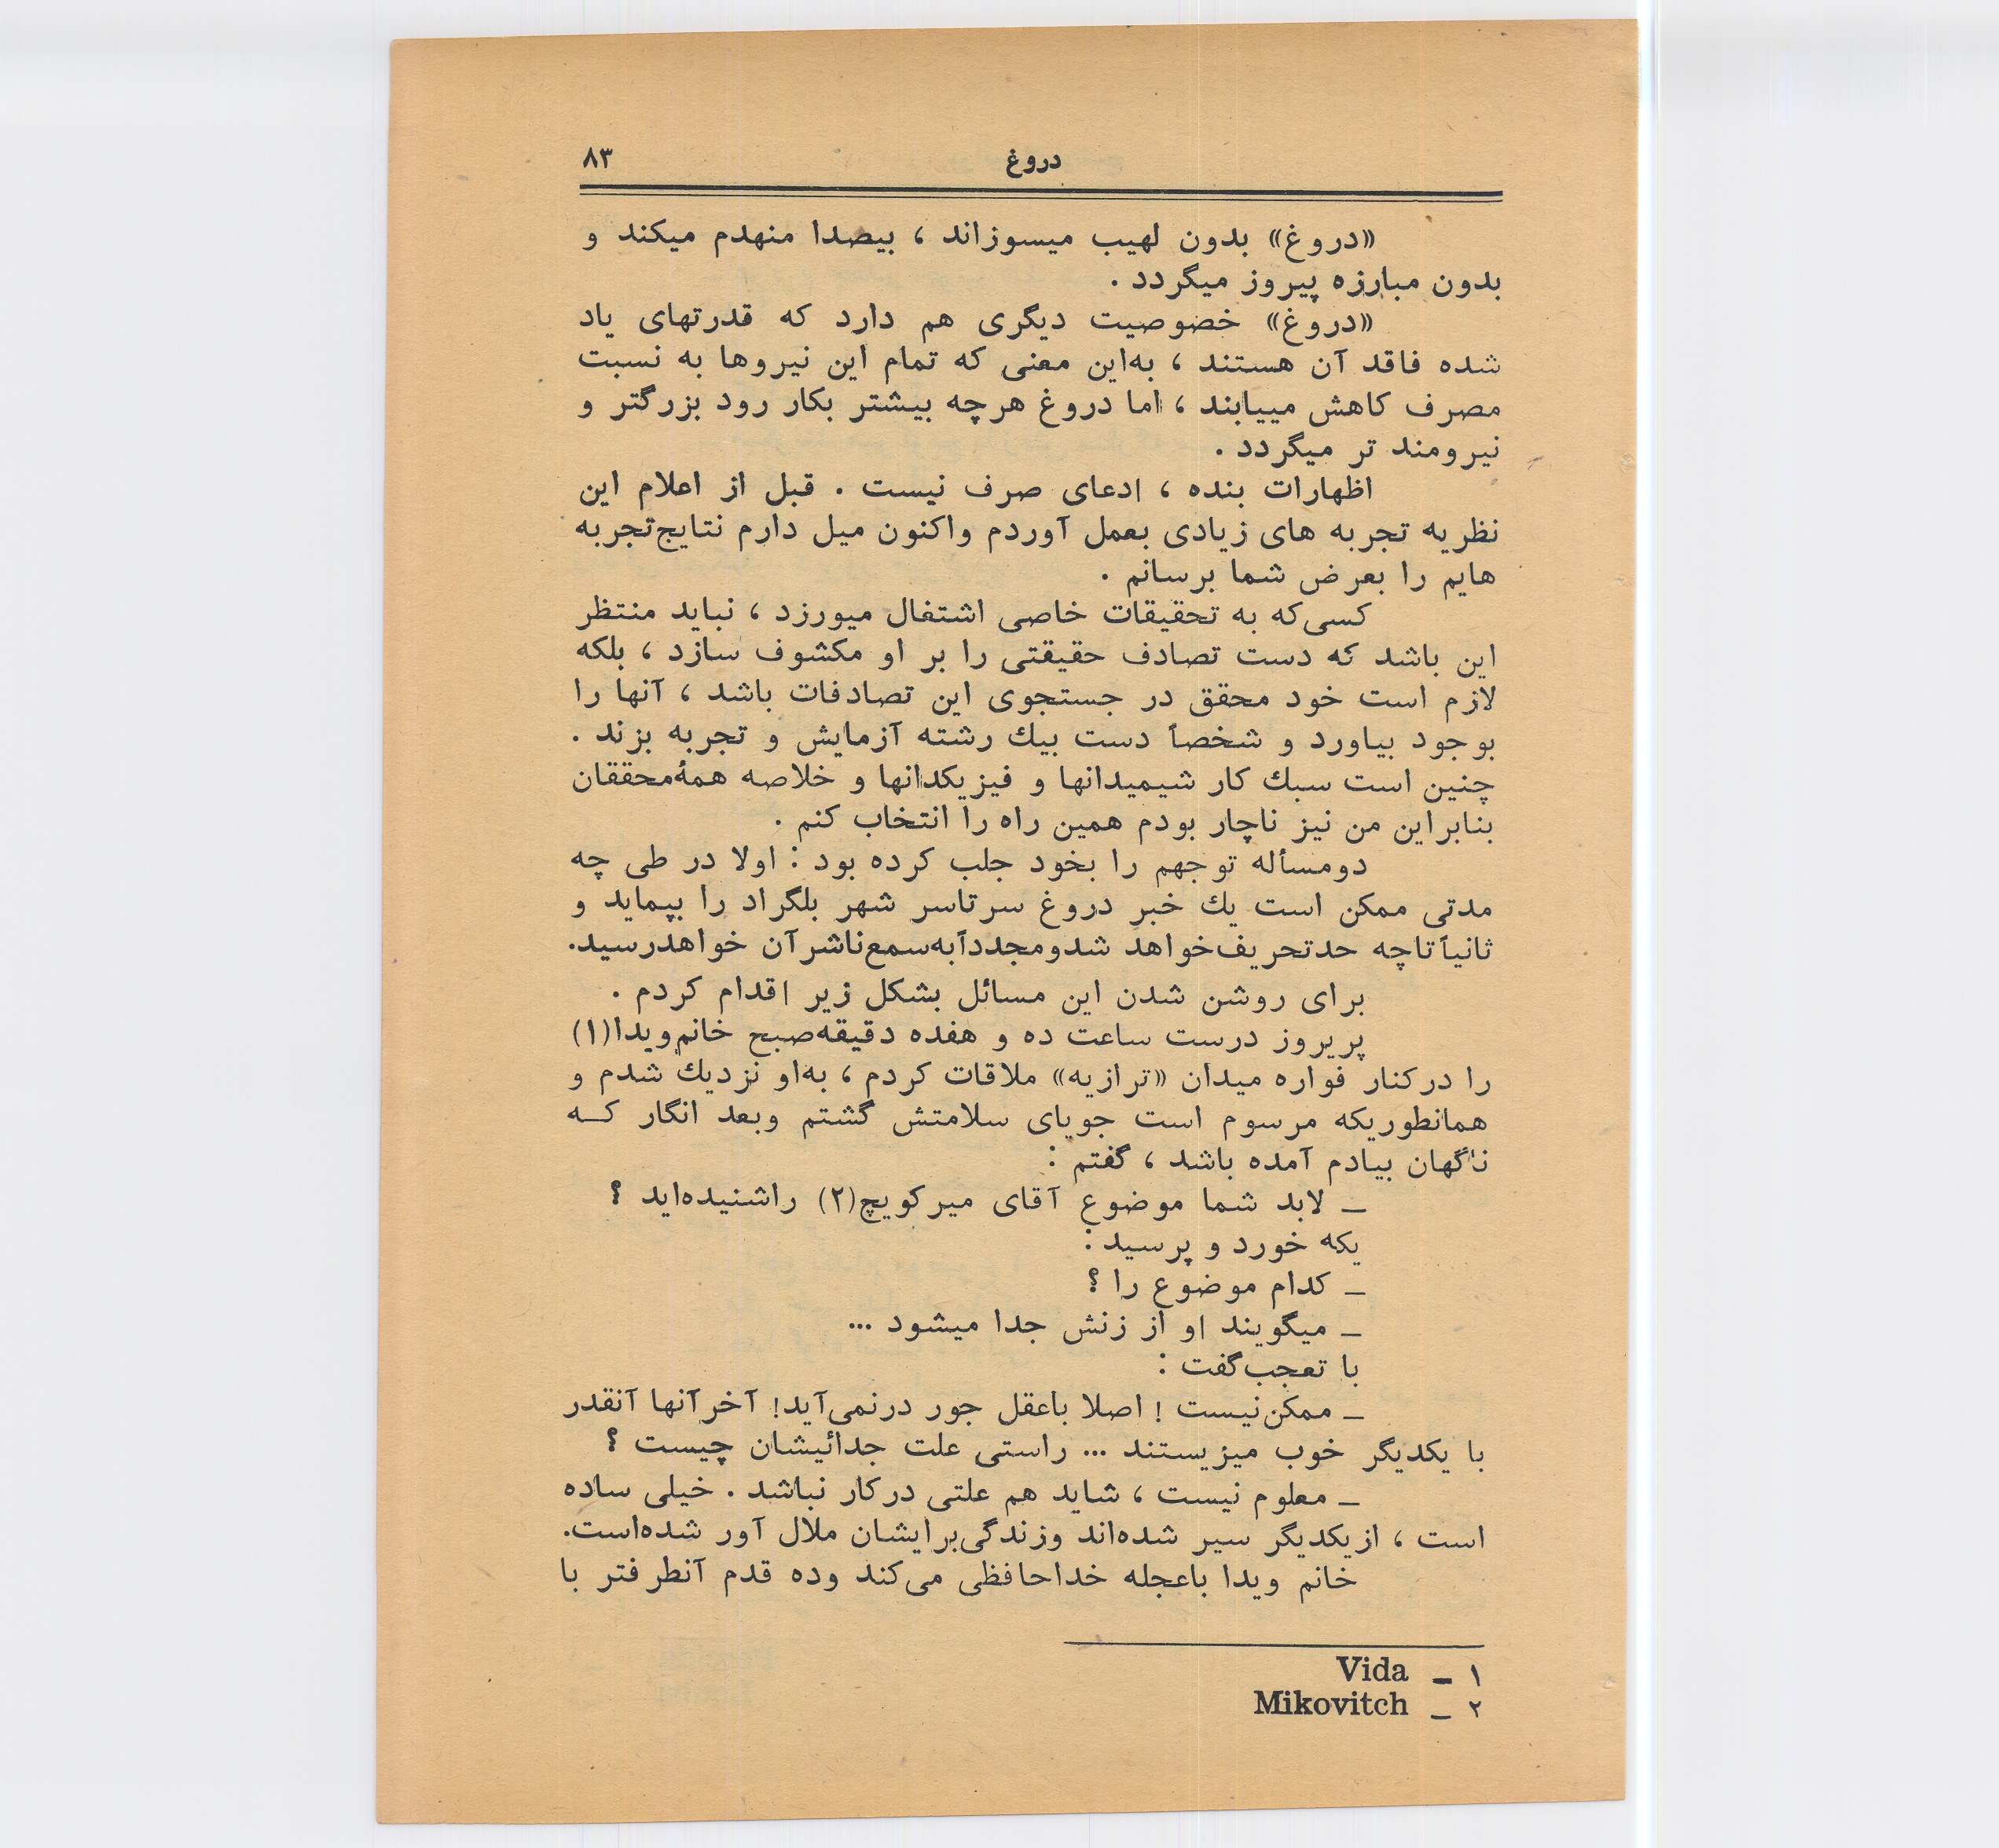 دروغ ۸۳
«دروغ» بدون لهیب میسوزاند ، بیصدا منهدم میکند و
بدون مبارزه پیروز میگردد .
«دروغ» خصوصیت دیگری هم دارد که قدرتهای یاد
شده فاقد آن هستند ، به‌این معنی که تمام این نیروها به نسبت
مصرف کاهش مییابند ، اما دروغ هرچه بیشتر بکار رود بزرگتر و
نیرومند تر میگردد .
اظهارات بنده ، ادعای صرف نیست . قبل از اعلام این
نظریه تجربه های زیادی بعمل آوردم واکنون میل دارم نتایج‌تجربه
هایم را بعرض شما برسانم .
کسی‌که به تحقیقات خاصی اشتغال میورزد ، نباید منتظر
این باشد که دست تصادف حقیقتی را بر او مکشوف سازد ، بلکه
لازم است خود محقق در جستجوی این تصادفات باشد ، آنها را
بوجود بیاورد و شخصاً دست بیك رشته آزمایش و تجربه بزند .
چنین است سبك کار شیمیدانها و فیزیکدانها و خلاصه همهٔ‌محققان
بنابراین من نیز ناچار بودم همین راه را انتخاب کنم .
دومسأله توجهم را بخود جلب کرده بود : اولا در طی چه
مدتی ممکن است یك خبر دروغ سرتاسر شهر بلگراد را بپماید و
ثانیاً تاچه حدتحریف‌خواهد شدومجدداًبه‌سمع‌ناشرآن خواهدرسید.
برای روشن شدن این مسائل بشکل زیر اقدام کردم .
پریروز درست ساعت ده و هفده دقیقه‌صبح خانم‌ویدا(۱)
را درکنار فواره میدان «ترازیه» ملاقات کردم ، به‌او نزدیك شدم و
همانطوریکه مرسوم است جویای سلامتش گشتم وبعد انگار کـه
ناگهان بیادم آمده باشد ، گفتم :
ـ لابد شما موضوع آقای میرکویچ(۲) راشنیده‌اید ؟
یکه خورد و پرسید :
ـ کدام موضوع را ؟
ـ میگویند او از زنش جدا میشود ...
با تعجب‌گفت :
ـ ممکن‌نیست ! اصلا باعقل جور درنمی‌آید! آخرآنها آنقدر
با یکدیگر خوب میزیستند ... راستی علت جدائیشان چیست ؟
ـ معلوم نیست ، شاید هم علتی درکار نباشد . خیلی ساده
است ، ازیکدیگر سیر شده‌اند وزندگی‌برایشان ملال آور شده‌است.
خانم ویدا باعجله خداحافظی می‌کند وده قدم آنطرفتر با
۱ ـ Vida
۲ ـ Mikovitch